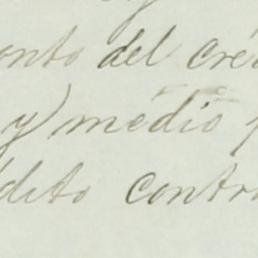 onto del cré
y medio p
dito contra